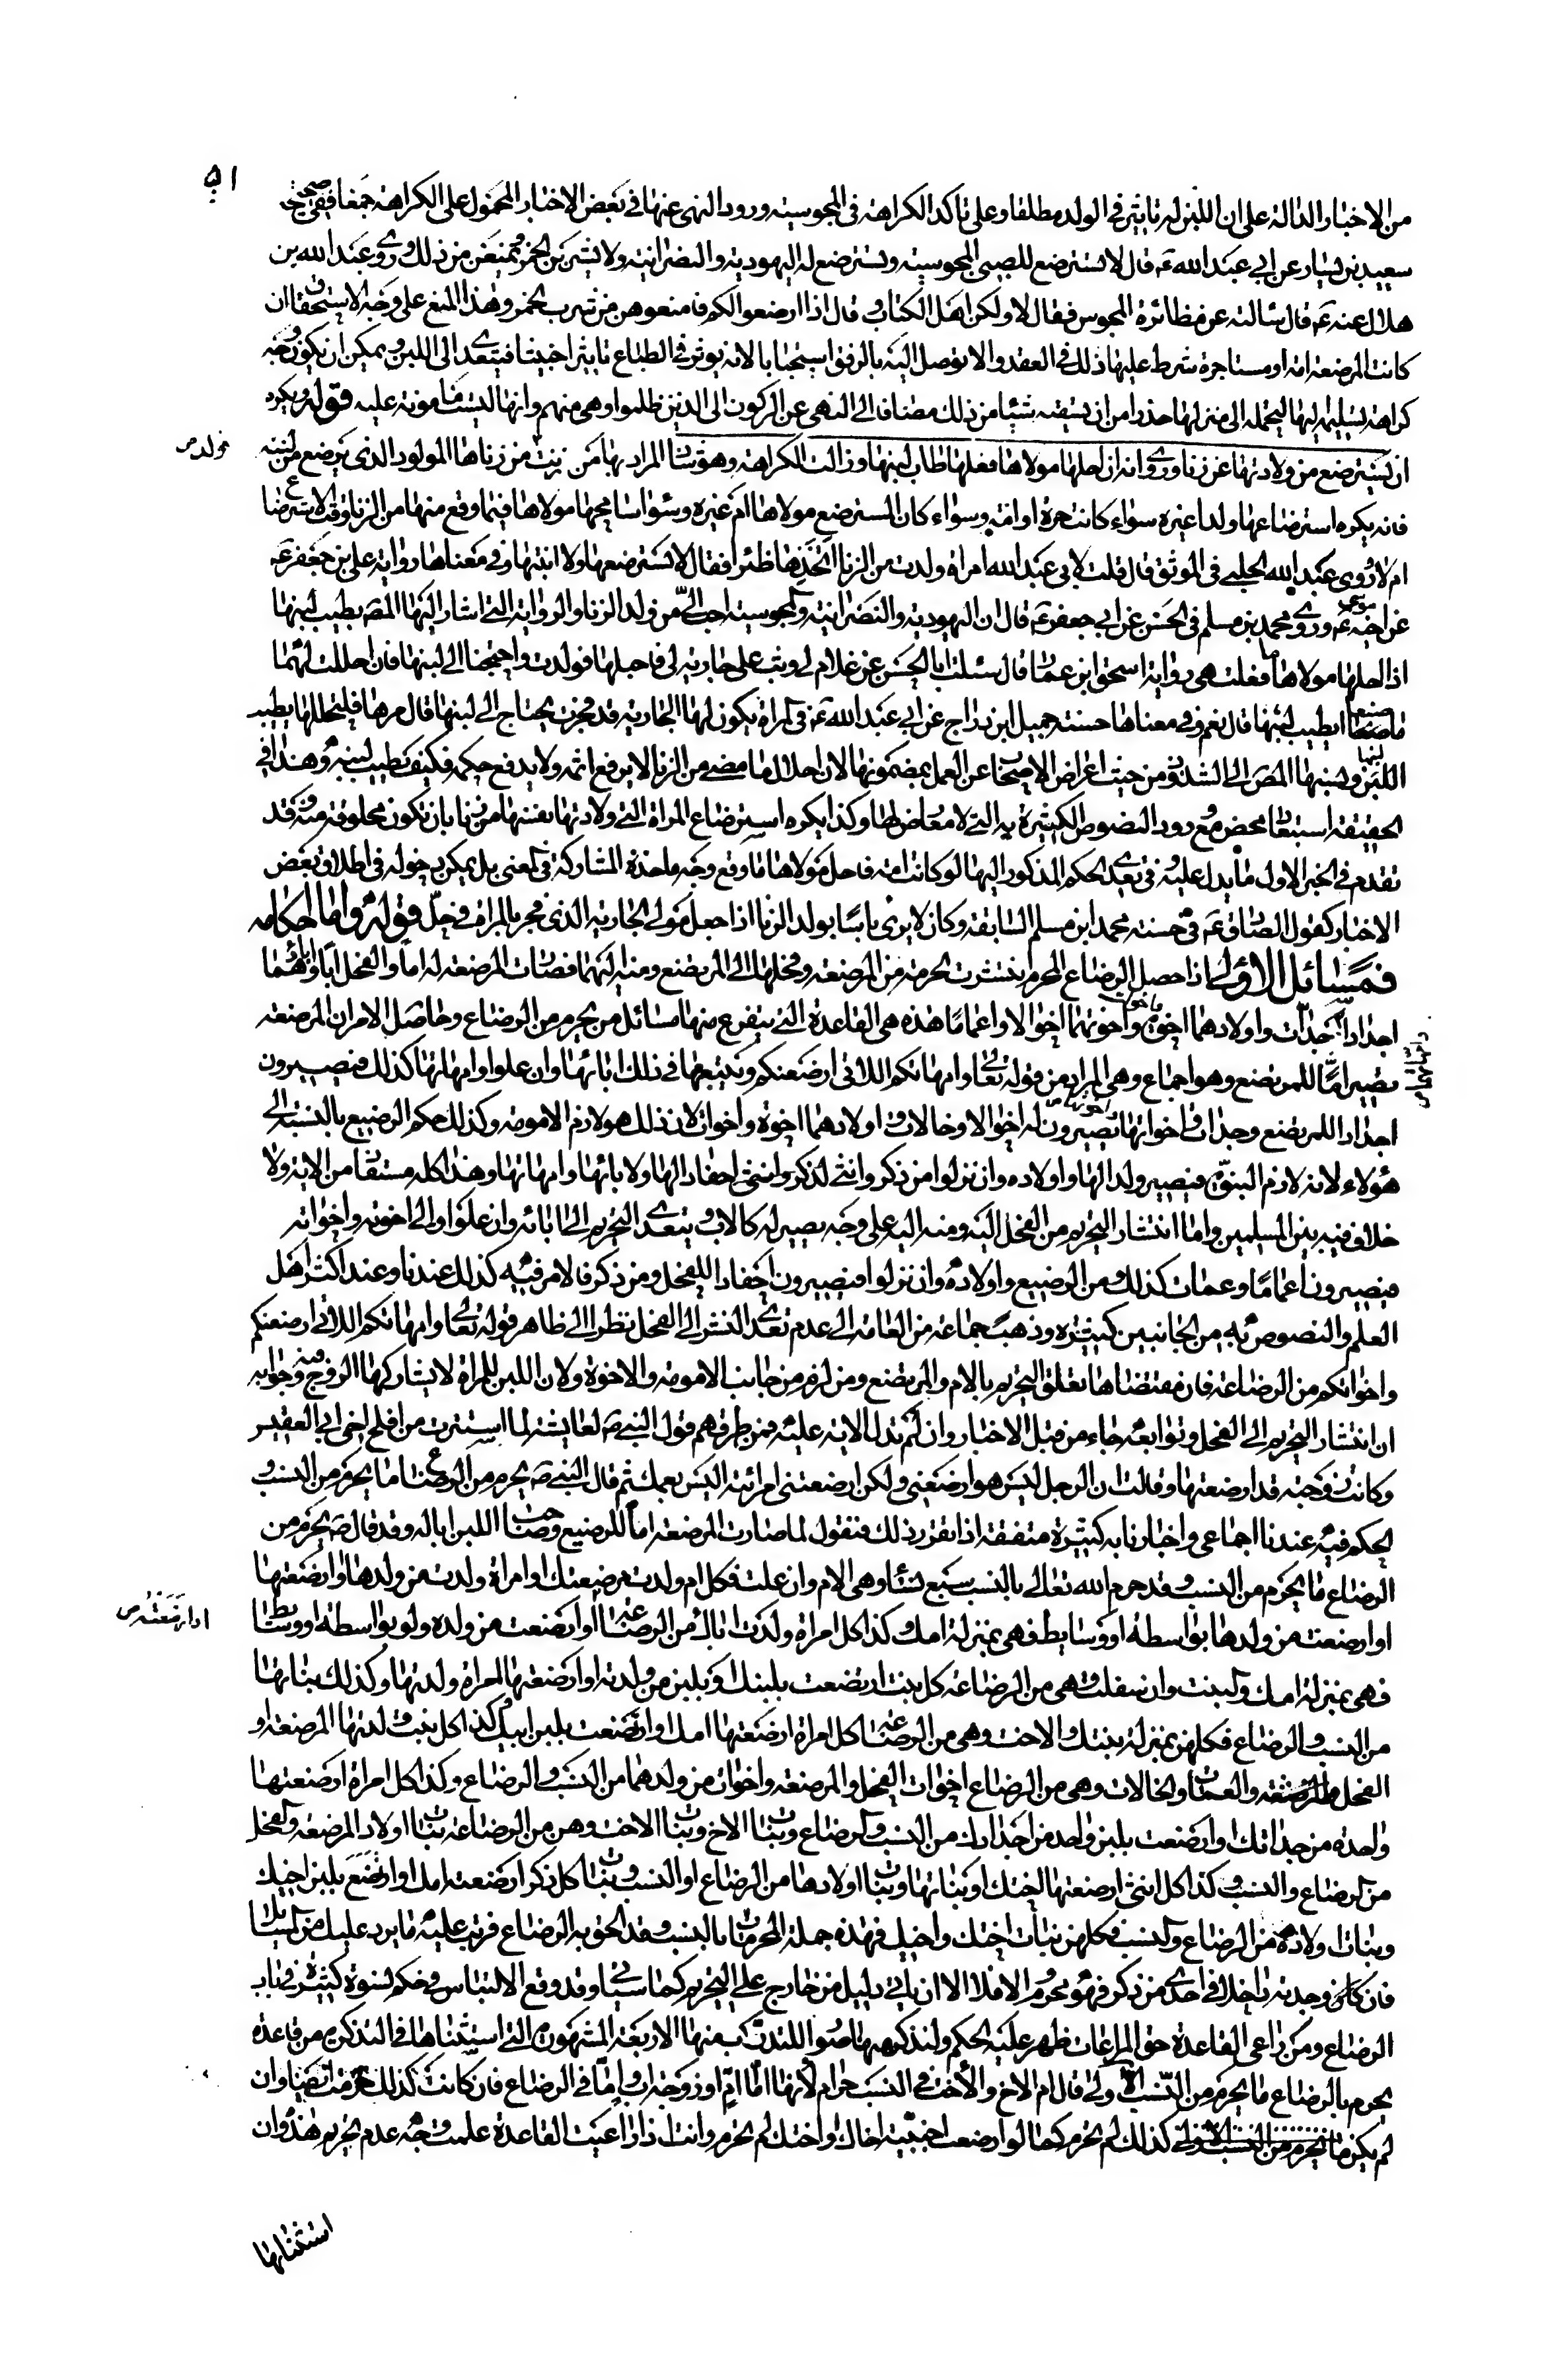 ٥١
من الاخبار الدالة على ان اللبن له تاثير في الولد مطلقا وعلى تاكد الكراهة في المجوسية ورود النهى عنها في بعض الاخبار المحمول على الكراهة جمعا ففي صحيح
سعيد بن يسار عن ابي عبد الله ع قال لا تسترضع للصبي المجوسية وتسترضع له اليهودية والنصرانية ولا يشربن الخمر ويمنعن من ذلك وروى عبد الله بن
هلال عنه ع قال سالته عن مظائرة المجوس فقال لا ولكن اهل الكتاب وقال اذا ارضعوا لكم فامنعوهن من شرب الخمر وهذا المنع على وجه الاستحقاق ان
كانت المرضعة امة او مستاجرة شرط عليها ذلك في العقد والا توصل اليه بالرفق استحبابا لانه يوثر في الطباع تاثيرا خبيثا فيتعدى الى اللبن ويمكن ان يكون وجه
كراهة تسليمه اليها لتحمله الى منزلها حذرا من ان تسقيه شيئا من ذلك مضافا الى النهى عن الركون الى الذين ظلموا وهى منهم وانها ليست مامونة عليه قوله ويكره
ان يسترضع من ولادتها عن زنا وروى انه ان احلها مولاها فعلها طاب لبنها وزالت الكراهة وهو شاذ المراد بها من زنت من زناها المولود الذى يرضع من لبنه
فانه يكره استرضاعها ولدا غيره سواء كانت حرة او امة وسواء كان المسترضع مولاها ام غيره وسواء سامحها مولاها فيما وقع منها من الزنا وقت الاسترضاع
ام لا روى عبيد الله الحلبي في الموثق قال قلت لابي عبد الله امراة ولدت من الزنا اتخذها ظئرا فقال لا تسترضعها ولا ابنتها وفي معناها رواية على بن جعفر ع
عن اخيه موسى ع وروى محمد بن مسلم في الحسن عن ابي جعفر ع قال ان اليهودية والنصرانية والمجوسية احب الى من ولد الزنا والرواية التى اشار اليها المص بطيب لبنها
اذا احلها مولاها ما فعلت هى رواية اسحق ابن عمار قال سئلت ابا الحسن عن غلام لي وثب على جارية لي فاحبلها فولدت واحتجنا الى لبنها فان احللت لهما
ما صنعا ايطيب لبنها قال نعم وفي معناها حسنة جميل ابن دراج عن ابي عبد الله ع في امراة يكون لها الجارية قد فجرت يحتاج الى لبنها قال مرها فلتحللها يطيب
اللبن ونسبها المص الى الشذوذ من حيث اعراض الاصحاب عن العمل بمضمونها لان احلال ما مضى من الزنا لا يرفع اثمه ولا يدفع حكمه فكيف يطيب لبنه وهذا في
الحقيقة استبعاد محض مع ورود النصوص الكثيرة به التى لا معارض لها وكذا يكره استرضاع المراة التى ولادتها نفسها من زنا بان تكون مخلوقة منه وقد
تقدم في الخبر الاول ما يدل عليه وفي تعدى الحكم المذكور اليها لو كانت امة فاحل مولاها ما وقع وجه ماخذه المشاركة في المعنى بل يمكن دخوله في اطلاق بعض
الاخبار كقول الصادق ع في حسنة محمد ابن مسلم السابقة وكان لا يرى باسا بولد الزنا اذا جعل مولى الجارية الذى فجر بالمراة في حل قوله واما احكامه
فمسائل الاولى اذا حصل الرضاع المحرم انتشرت الحرمة من المرضعة وفحلها الى المرتضع ومنه اليهما فصارت المرضعة له اما والفحل ابا واباؤهما
اجدادا وجدات واولادهما اخوة واخوات واخوتهما اخوالا واعماما هذه هى القاعدة التى يتفرع منها مسائل من يحرم من الرضاع وحاصل الامر ان المرضعة
تصير اما للمرتضع وهو اجماع وهى المراد من قوله تعالى وامهاتكم اللاتى ارضعنكم ويتبعها في ذلك ابائها وان علوا وامهاتها كذلك فيصيرون
اجدادا للمرتضع وجدات واخواتها يصيرون له اخوالا وخالات واولادهما اخوة واخوات لان ذلك هو لازم الامومة وكذلك حكم الرضيع بالنسبة الى
هؤلاء لانه لازم البنوة فيصير ولدا لها واولاده وان نزلوا من ذكر وانثى لذكر وانثى احفادا لها ولابائها وامهاتها وهذا كله مستفاد من الاية ولا
خلاف فيه بين المسلمين واما انتشار التحريم من الفحل اليه ومنه اليه على وجه يصير له كالاب ويتعدى التحريم الى ابائه وان علوا والى اخوته واخواته
فيصيرون اعماما وعمات كذلك ومن الرضيع واولاده وان نزلوا فيصيرون احفادا للفحل ومن ذكر فالامر فيه كذلك عندنا وعند اكثر اهل
العلم والنصوص به من الجانبين كثيرة وذهب جماعة من العامة الى عدم تعدى النشر الى الفحل نظرا الى ظاهر قوله تعالى وامهاتكم اللاتى ارضعنكم
واخواتكم من الرضاعة فان مقتضاها تعلق التحريم بالام والمرتضع ومن لزم من جانب الامومة والاخوة ولان اللبن للمراة لا يشاركها الزوج فيه وجوابه
ان انتشار التحريم الى الفحل وتوابعه جاء من قبل الاخبار وان لم تدل الاية عليه فمن طرقهم قول النبي ص لعايشة لما استترت من افلح اخى ابي القعيس
وكانت زوجته قد ارضعتها وقالت ان الرجل ليس هو ارضعنى ولكن ارضعتنى امرئته اليس بعمك ثم قال النبي ص يحرم من الرضاع ما يحرم من النسب و
الحكم فيه عندنا اجماعى واخبارنا به كثيرة متفقة اذا تقرر ذلك فنقول لما صارت المرضعة اما للرضيع وصاحب اللبن ابا له وقد قال ص يحرم من
الرضاع ما يحرم من النسب وقد حرم الله تعالى بالنسب سبع نساء وهى الام وان علت فكل ام ولدت مرضعتك او امراة ولدت من ولدها او ارضعتها
او ارضعت من ولدها بواسطة او وسايط فهى بمنزلة امك وكذا كل امراة ولدت اباك من الرضاعة او ارضعت من ولده ولو بواسطة او وسائط
فهى بمنزلة امك والبنت وان سفلت وهى من الرضاعة كل بنت ارتضعت بلبنك وبلبن من ولدته او ارضعتها امراة ولدتها وكذلك بناتها
من النسب والرضاع فكلهن بمنزلة بنتك والاخت وهى من الرضاعة كل امراة ارضعتها امك او ارتضعت بلبن ابيك وكذا كل بنت ولدتها المرضعة او
الفحل والعمات والخالات وهى من الرضاع اخوات الفحل والمرضعة واخوات من ولدهما من النسب والرضاع وكذا كل امراة ارضعتها
واحدة من جداتك او ارتضعت بلبن واحد من اجدادك من النسب والرضاع وبنات الاخ وبنات الاخت وهن من الرضاعة بنات اولاد المرضعة والفحل
من الرضاع والنسب وكذا كل انثى ارضعتها اختك او بناتها وبنات اولادها من الرضاع او النسب وبنات كل ذكر ارضعته امك او ارتضع بلبن ابيك
وبنات اولاده من الرضاع والنسب فكلهن بنات اختك واخيك فهذه جملة المحرمات بالنسب وقد الحق به الرضاع فرتب عليه ما يرد عليك من المسائل
فان كان وجدته داخلا في احدى من ذكر فهو محرم والا فلا الا ان ياتى دليل من خارج على التحريم كما سياتى وقد وقع الالتباس في حكم نسوة كثيرة في باب
الرضاع ومن راعى القاعدة حق المراعات ظهر عليه الحكم ولنذكر هيهنا صورا للتدرب منها الاربعة المشهورة التى استثناها في التذكرة من قاعدة
يحرم بالرضاع ما يحرم من النسب الاولى قال ام الاخ والاخت في النسب حرام لانها اما ام او زوجة اب واما في الرضاع فان كانت كذلك حرمت ايضا وان
لم يكن كذلك لم تحرم كما لو ارضعت اجنبية اخاك او اختك لم تحرم وانت اذا راعيت القاعدة علمت وجه عدم تحريم هذه وان
استثنائها